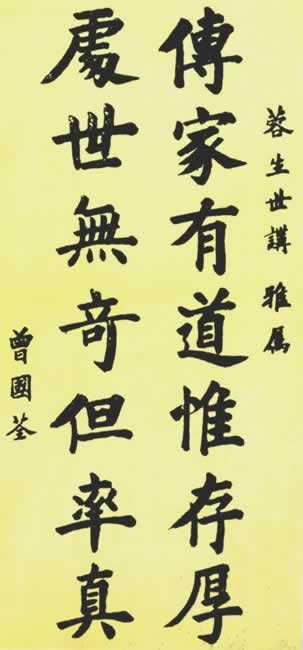 蓉生世講雅属
傳家有道惟存厚
處世無奇但率真
曾國荃